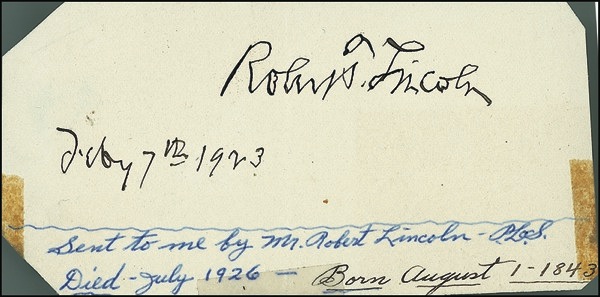 Robert T. Lincoln
Feby 7th 1923
Sent to me by Mr. Robert Lincoln -
Died - July 1926 - Born August 1 - 1843